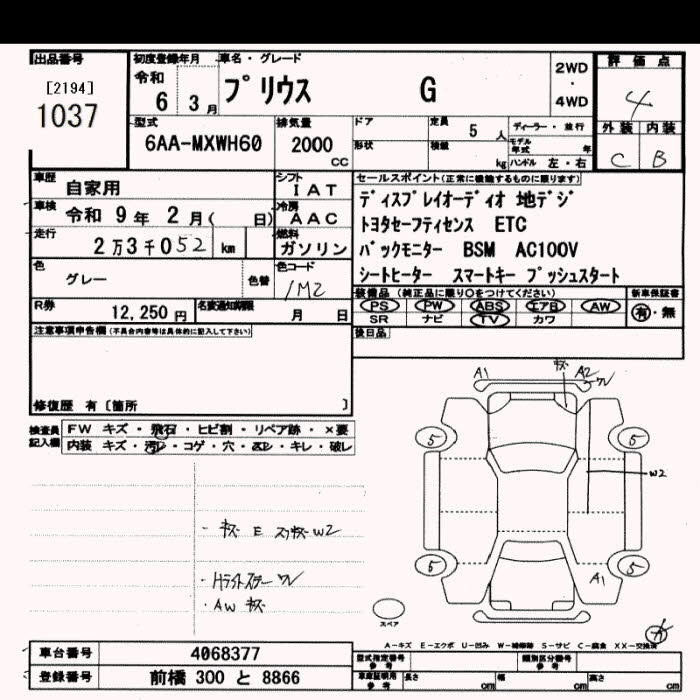 出品番号
[2194]
1037
初度登録年月
令和
6 3月
車名・グレード
プリウス G
2WD
・
4WD
評価点
4
外装 内装
C B
型式
6AA-MXWH60
排気量
2000
CC
ドア
形状
定員
5 人
積載
kg
ディーラー・並行
モデル
年式 年
ハンドル 左・右
車歴
自家用
シフト
IAT
車検
令和 9年 2月( 日)
冷房
AAC
走行
2万3千052 km
燃料
ガソリン
色
グレー
色替
色コード
1M2
R券
12,250 円
名変通知期限
月 日
セールスポイント(正常に機能するものに限ります)
ディスプレイオーディオ 地デジ
トヨタセーフティセンス ETC
バックモニター BSM AC100V
シートヒーター スマートキー プッシュスタート
装備品(純正品に限り○をつけてください)
新車保証書
PS PW ABS エアB AW
SR ナビ TV カワ
有・無
後日品
注意事項申告欄(不具合内容等は具体的に記入して下さい)
修復歴 有〔箇所 〕
検査員
記入欄
FW キズ・飛石・ヒビ割・リペア跡・×要
内装 キズ・汚レ・コゲ・穴・ヌレ・キレ・破レ
A1
キズ
A2
ワレ
5
5
W2
5
5
A1
・キズ E スリキズ W2
・Hライトステー ワレ
・AW キズ
スペア
A
A-キズ E-エクボ U-凹み W-補修跡 S-サビ C-腐食 XX-交換済
車台番号
4068377
登録番号
前橋 300 と 8866
型式指定番号
参考
類別区分番号
参考
車庫証明用
参考
長さ cm
幅 cm
高さ cm